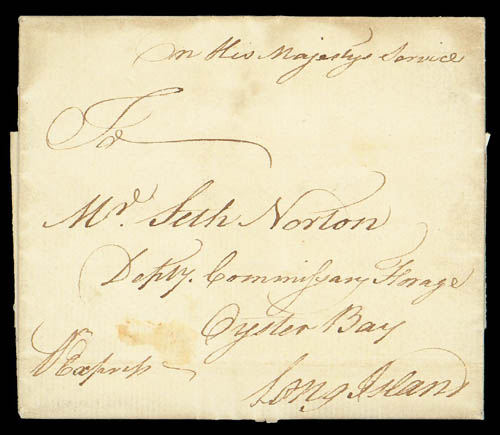 On His Majestys Service
To
Mr. Seth Norton
Depty. Commissary Forage
Oyster Bay
Express
Long Island